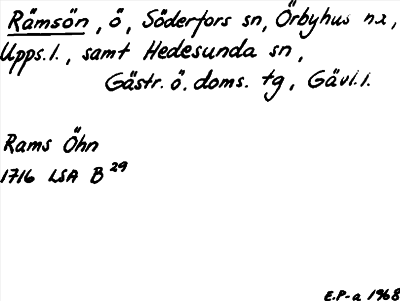 Rämsön, ö, Söderfors sn, Örbyhus hd,
Upps.l., samt Hedesunda sn,
Gästr. ö. doms. tg, Gävl.l.
Rams Öhn
1716 LSA B 29
E.P-a 1968